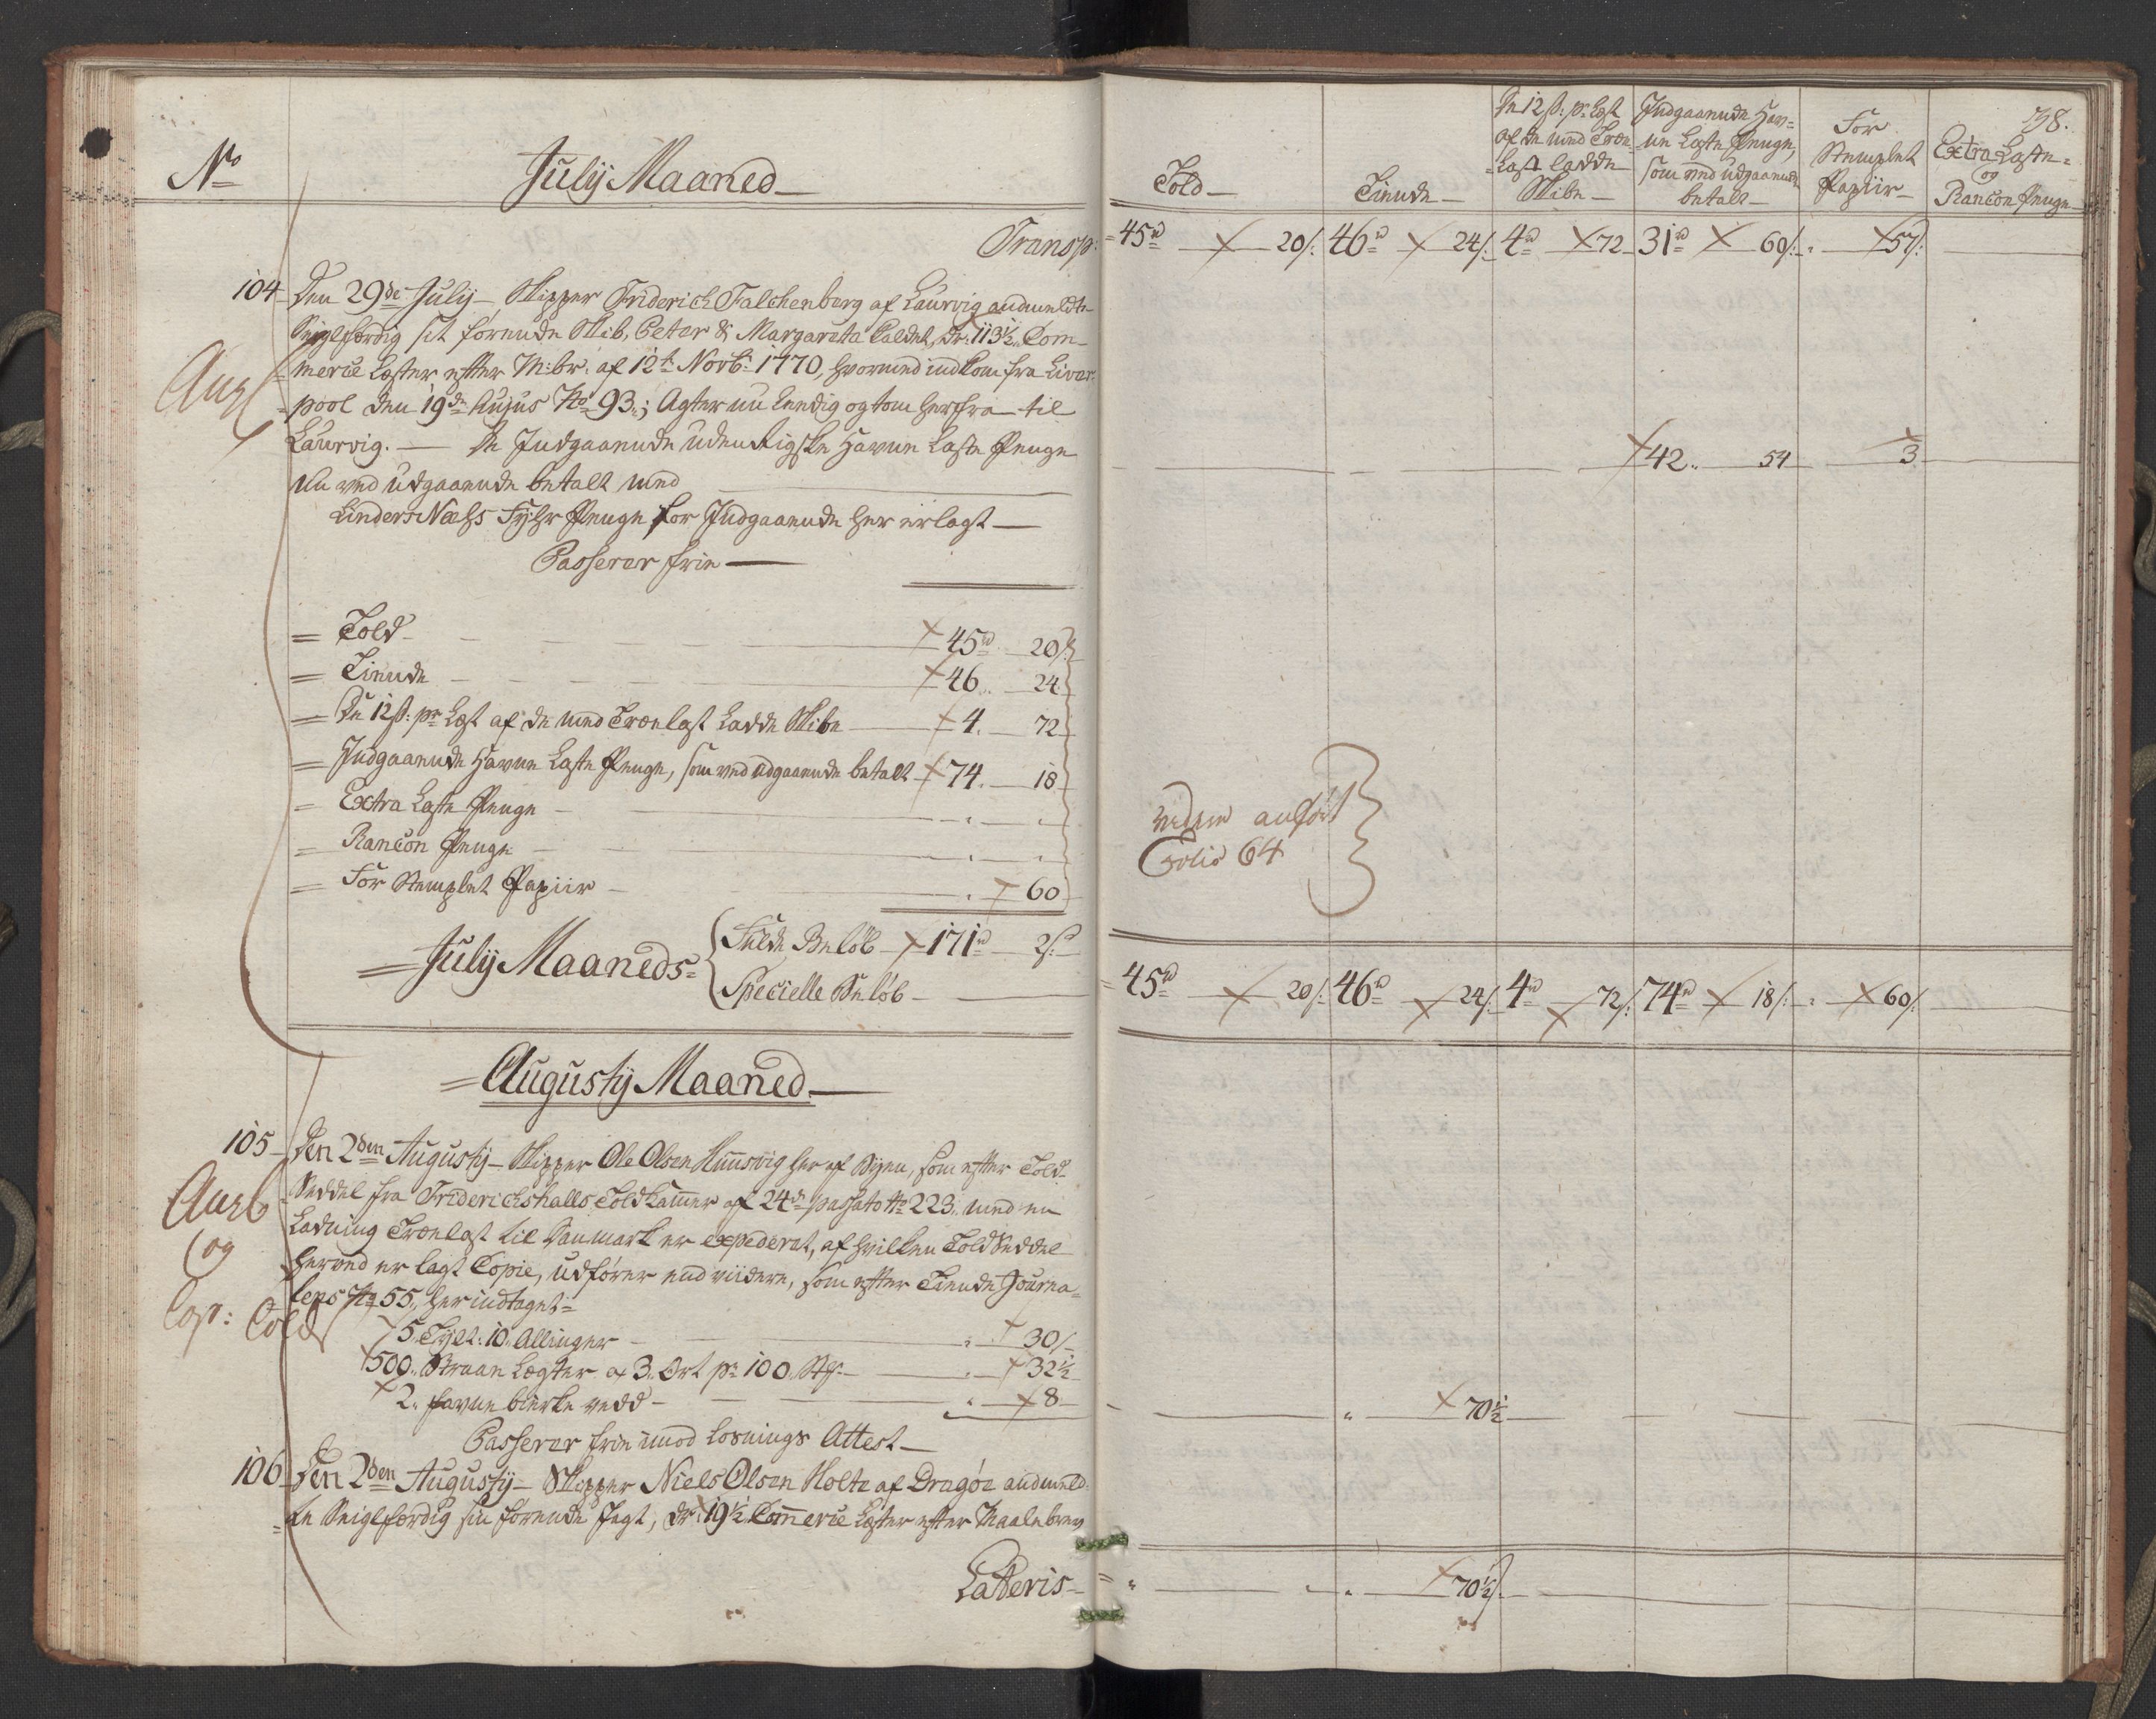 No
July Maaned
Transp:
104 Den 29de July Skipper Friderich Falchenberg af Laurvig andmeldte
Seiglfærdig sit førende Skib, Peter & Margareta Caldet, Dr: 113½ Com-
mercie Læster efter M:br: af 12t Novb: 1770, hvormed indkom fra Liver-
pool den 19de Hujus No 93; Agter nu Leedig og tom herfra til
Laurvig. De Indgaaende Udenrigske Havne Læste Penge
nu ved Udgaaende betalt med
Linders Næss Fyhr Penge for Indgaaende her erlagt
Passerer frie
= Told 45rd 20ß
= Tiende 46 24
= De 12ß: pr Læst af de med Trælast Ladde Skibe 4. 72
= Indgaaende Havne Læste Penge, som ved udgaaende betalt 74. 18
= Extra Læste Penge
= Rancon Penge
= For Stemplet Papiir 60
= July Maaneds=
Fulde Beløb 171rd 2ß
Specielle Beløb
= Augusty Maaned
105 Den 2den Augusty Skipper Ole Olsen her af Byen, som efter Told-
Seddel fra Friderichshalls Toldkammer af 24de passato No 223 med en
Ladning Trælast til Danmark er expederet, af hvilken Told Seddel
herved er lagt Copie, udfører end viidere, som efter Tiende Journa-
lens No 55, her indtaget=
5 Tylt: 10 Allinger 30ß
500 Straan Lægter a 3 Ort pr 100 St: 32½
2 favne birke vedd 8
Passerer frie imod Losnings Attest
106 Den 2den Augusty Skipper Niels Olsen Holte af Dragöe andmeld-
te Seiglfærdig sin førende Jagt, dr: 19½ Commercie Læster efter Maalebrev
Latteris
og
Cop:
Told
Tiende
De 12ß: pr Læst
af de med Træ-
Last ladde
Skibe
Indgaaende Hav-
ne Læste Penge,
som ved udgaaende
betalt
For
Stemplet
Papiir
Extra Læste
og
Rancon Penge
45rd 20ß: 46rd 24ß: 4rd 72 31rd 60ß: 57ß:
42 54 3
anført
Folio 64
45rd 20ß: 46rd 24ß: 4rd 72ß: 74rd 18ß: 60ß:
70½
70½ß: